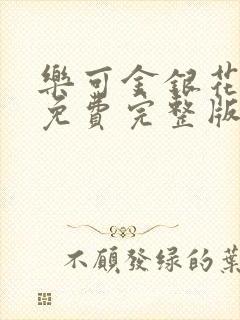 樂可金銀花
免費完整版
不願發绿的葉